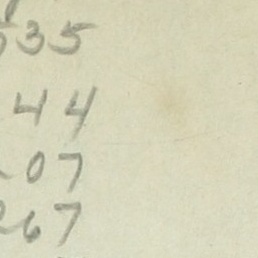 535
44
07
267